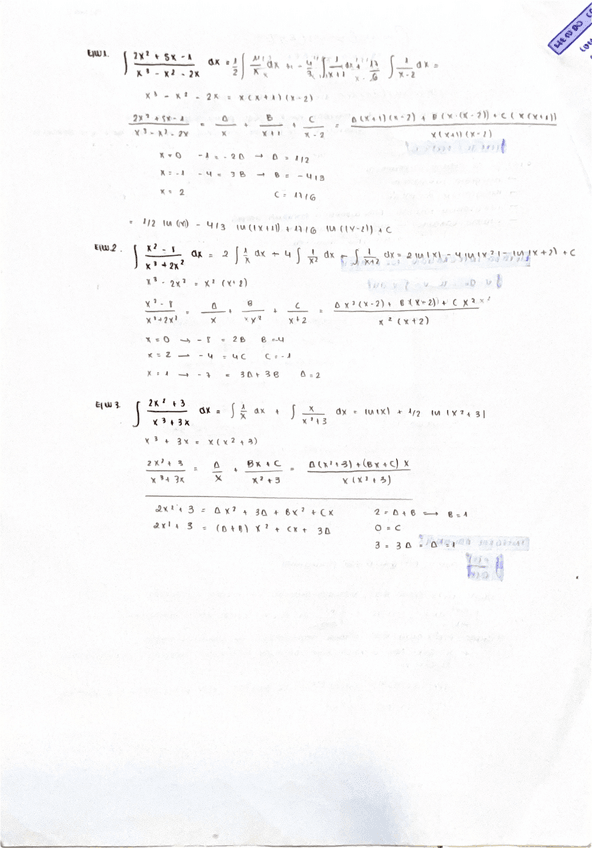 EJM 1. ∫ (2x² + 5x - 1)/(x³ - x² - 2x) dx = 1/2 ∫ 1/x dx - 4/3 ∫ 1/(x+1) dx + 11/6 ∫ 1/(x-2) dx =
x³ - x² - 2x = x(x+1)(x-2)
(2x² + 5x - 1)/(x³ - x² - 2x) = A/x + B/(x+1) + C/(x-2) = (A(x+1)(x-2) + B(x·(x-2)) + C(x(x+1)))/(x(x+1)(x-2))
x=0 -1 = -2A → A = 1/2
x=-1 -4 = 3B → B = -4/3
x=2 C = 11/6
= 1/2 ln(x) - 4/3 ln(|x+1|) + 11/6 ln(|x-2|) + C
EJM 2. ∫ (x² - 8)/(x³ + 2x²) dx = 2 ∫ 1/x dx - 4 ∫ 1/x² dx - ∫ 1/(x+2) dx = 2 ln|x| - 4 ln|x²| - ln|x+2| + C
x³ - 2x² = x²(x+2)
(x² - 8)/(x³+2x²) = A/x + B/x² + C/(x+2) =
x²(x+2)
x=0 → -8 = 2B B=-4
x=2 → -4 = 4C C=-1
x=1 → -7 = 3A + 3B A=2
EJM 3. ∫ (2x² + 3)/(x³ + 3x) dx = ∫ 1/x dx + ∫ x/(x²+3) dx = ln|x| + 1/2 ln|x²+3|
x³ + 3x = x(x²+3)
(2x² + 3)/(x³ + 3x) = A/x + (Bx + C)/(x²+3) = (A(x²+3) + (Bx+C)x)/(x(x²+3))
2x² + 3 = Ax² + 3A + Bx² + Cx 2 = A+B → B=1
2x² + 3 = (A+B)x² + Cx + 3A 0 = C
3 = 3A → A=1